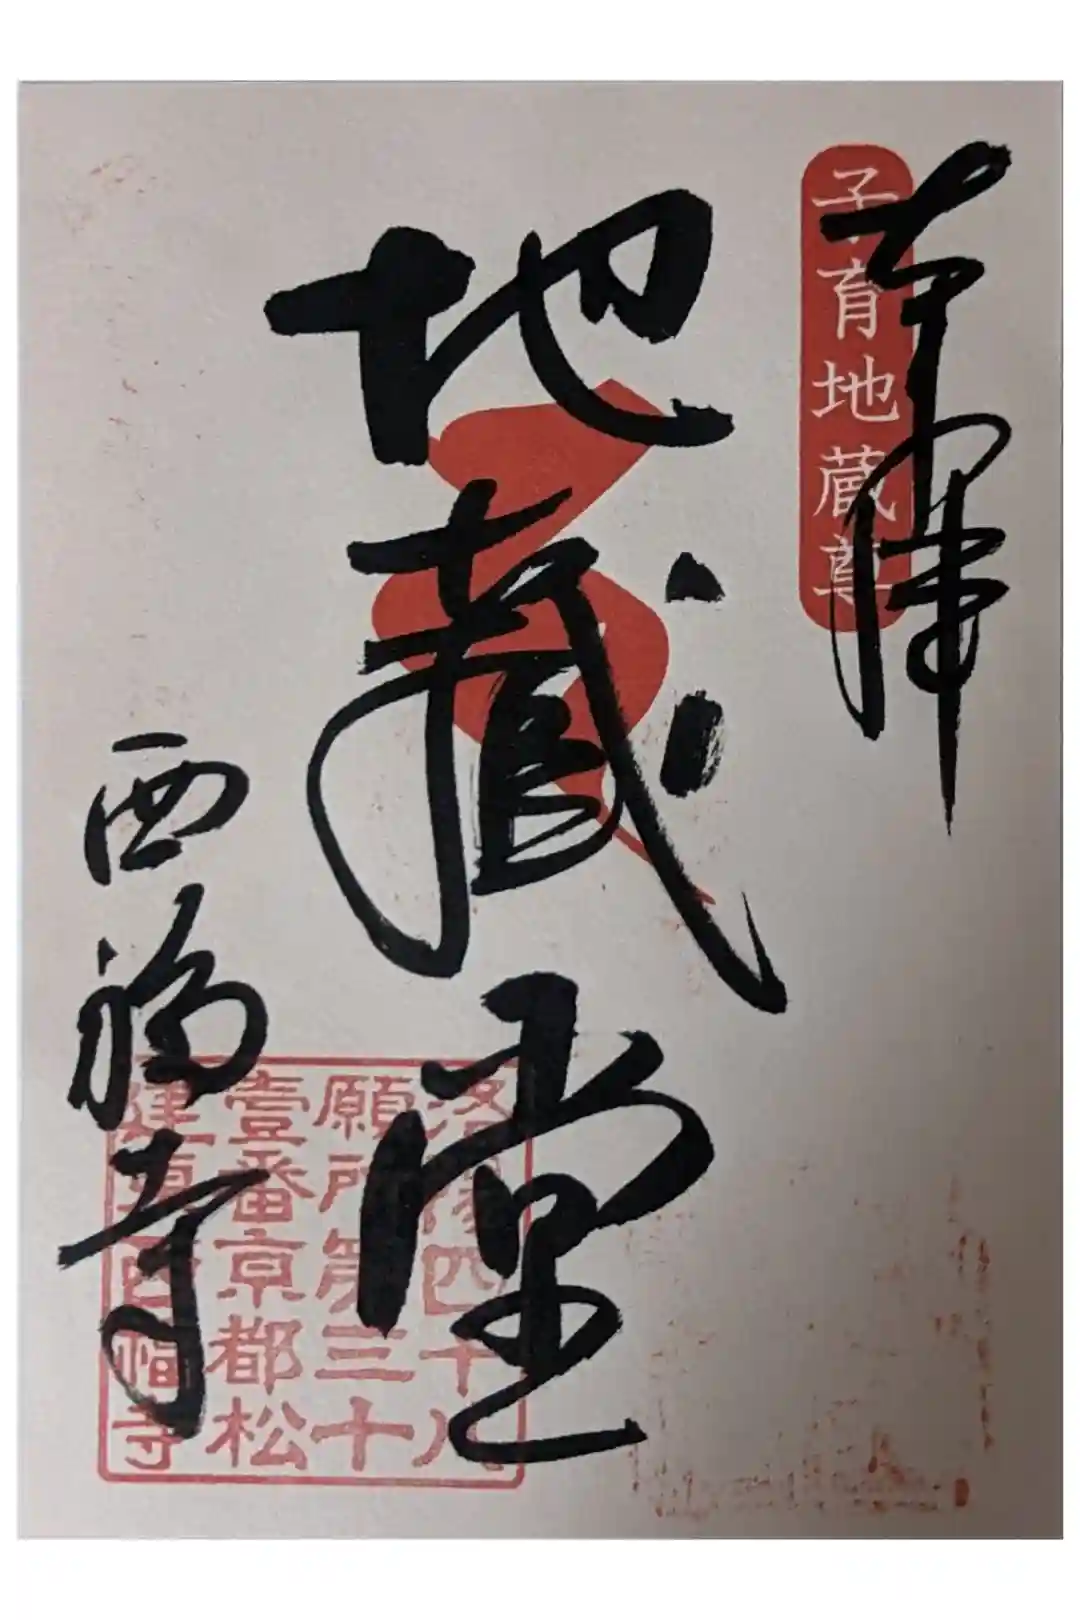 奉拝
子育地蔵尊
地蔵堂
西福寺
洛陽四十八
願所第三十
壹番京都松
建東西福寺